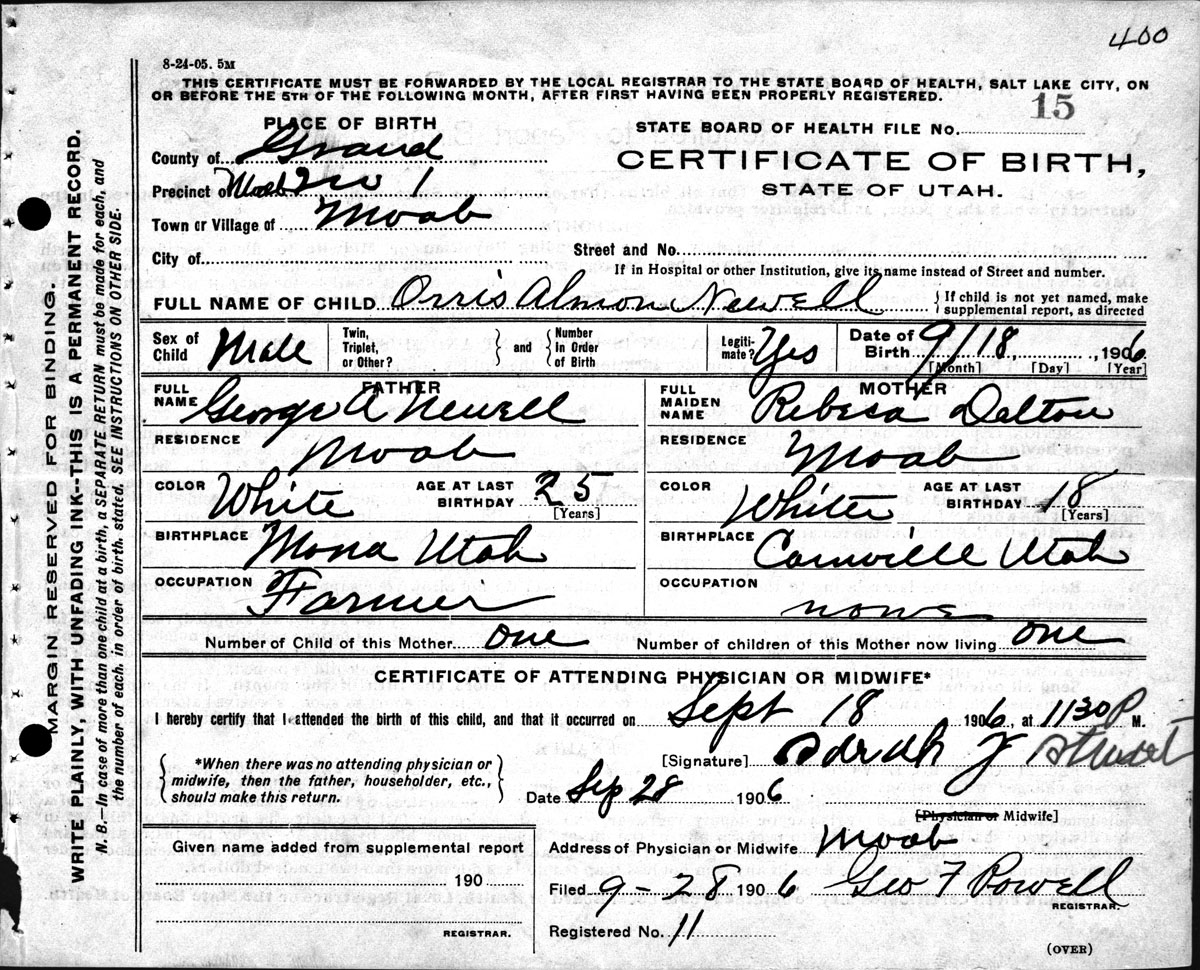 400
8-24-05. 5M
THIS CERTIFICATE MUST BE FORWARDED BY THE LOCAL REGISTRAR TO THE STATE BOARD OF HEALTH, SALT LAKE CITY, ON
OR BEFORE THE 5TH OF THE FOLLOWING MONTH, AFTER FIRST HAVING BEEN PROPERLY REGISTERED.
PLACE OF BIRTH
STATE BOARD OF HEALTH FILE No. 15
County of Grand
CERTIFICATE OF BIRTH,
Precinct of Moab No 1
STATE OF UTAH.
Town or Village of Moab
City of
Street and No.
If in Hospital or other Institution, give its name instead of Street and number.
FULL NAME OF CHILD Orris Almon Newell
} If child is not yet named, make
supplemental report, as directed
Sex of Child Male Twin, Triplet, or Other? } and { Number In Order of Birth Legiti-mate? Yes Date of Birth 9/18, , 1906
[Month] [Day] [Year]
FATHER
FULL NAME George A Newell
MOTHER
FULL MAIDEN NAME Rebesa Dalton
RESIDENCE Moab
RESIDENCE Moab
COLOR White AGE AT LAST BIRTHDAY 25 [Years]
COLOR White AGE AT LAST BIRTHDAY 18 [Years]
BIRTHPLACE Mona Utah
BIRTHPLACE Utah
OCCUPATION Farmer
OCCUPATION none
Number of Child of this Mother one Number of children of this Mother now living one
CERTIFICATE OF ATTENDING PHYSICIAN OR MIDWIFE*
I hereby certify that I attended the birth of this child, and that it occurred on Sept 18 1906, at 1130 P M.
{ *When there was no attending physician or
midwife, then the father, householder, etc.,
should make this return. }
[Signature]
Date Sep 28 1906
[Physician or Midwife]
Address of Physician or Midwife Moab
Given name added from supplemental report
190
REGISTRAR.
Filed 9-28 1906 Geo F Powell
REGISTRAR.
Registered No. 11
(OVER)
MARGIN RESERVED FOR BINDING.
WRITE PLAINLY, WITH UNFADING INK--THIS IS A PERMANENT RECORD.
N. B.—In case of more than one child at a birth, a SEPARATE RETURN must be made for each, and
the number of each, in order of birth, stated. SEE INSTRUCTIONS ON OTHER SIDE.